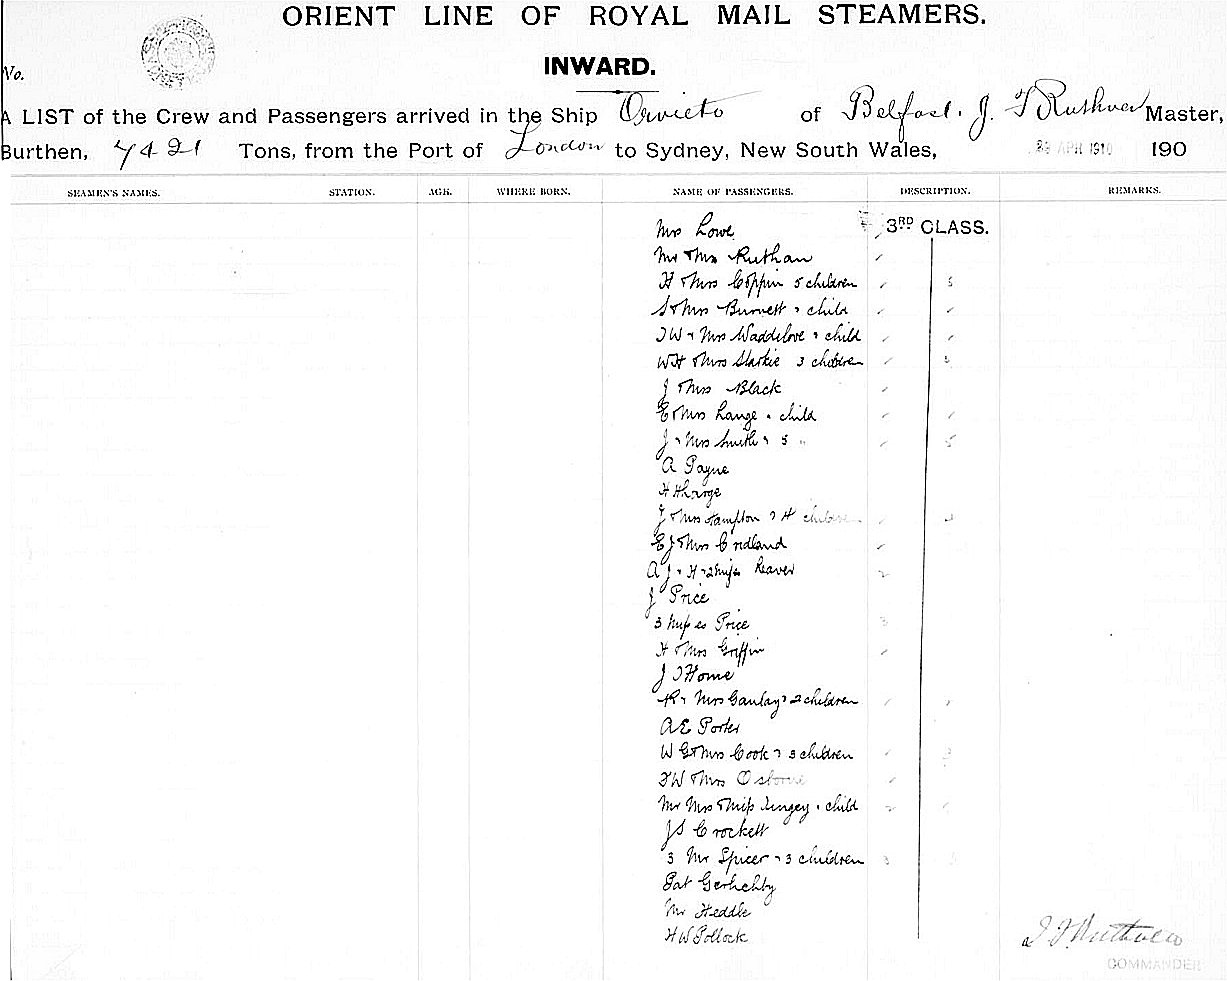 ORIENT LINE OF ROYAL MAIL STEAMERS.
INWARD.
No.
A LIST of the Crew and Passengers arrived in the Ship Orvieto of Belfast. J. F Ruthven Master,
Burthen, 7421 Tons, from the Port of London to Sydney, New South Wales, 29 APR 1910 190
SEAMEN'S NAMES. STATION. AGE. WHERE BORN. NAME OF PASSENGERS. DESCRIPTION. REMARKS.
Mrs Lowe 3RD CLASS.
Mr & Mrs Ruthan
H & Mrs Coppin 5 children 5
S & Mrs Burnett & child
J W & Mrs Waddilove & child
W H & Mrs Starkie 3 children 3
J & Mrs Black
E & Mrs Lange & child
J & Mrs Smith & 5 " 5
A Payne
H
J & Mrs Hampton & 4 children 4
E J & Mrs Cridland
A J & H & 2 Misses Reaver
J Price
3 Misses Price 3
H & Mrs Griffin
J J Home
R & Mrs Ganlay & 2 children
A E Porter
W G & Mrs Cook & 3 children 3
F W & Mrs Osborne
Mr Mrs & Miss Tingey & child
J S Crockett
3 Mr Spicer & 3 children 3
Pat
Mr Heddle
H W Pollock
J F Ruthven
COMMANDER